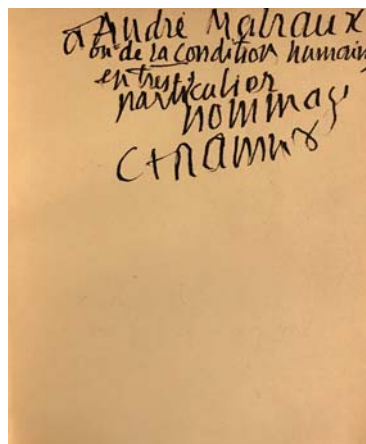 à André Malraux
ou de la condition humain
en très
particulier
hommag
C F Ramuz